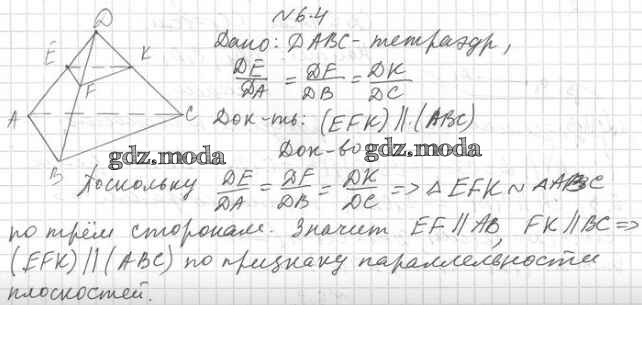 N 6.4
D
E
K
F
A
C
B
Дано: DABC - тетраэдр,
DE/DA = DF/DB = DK/DC
Док-ть: (EFK) || (ABC)
Док-во
gdz.moda gdz.moda
Поскольку DE/DA = DF/DB = DK/DC => △ EFK ~ △ABC
по трём сторонам. Значит EF || AB, FK || BC =>
(EFK) || (ABC) по признаку параллельности
плоскостей.